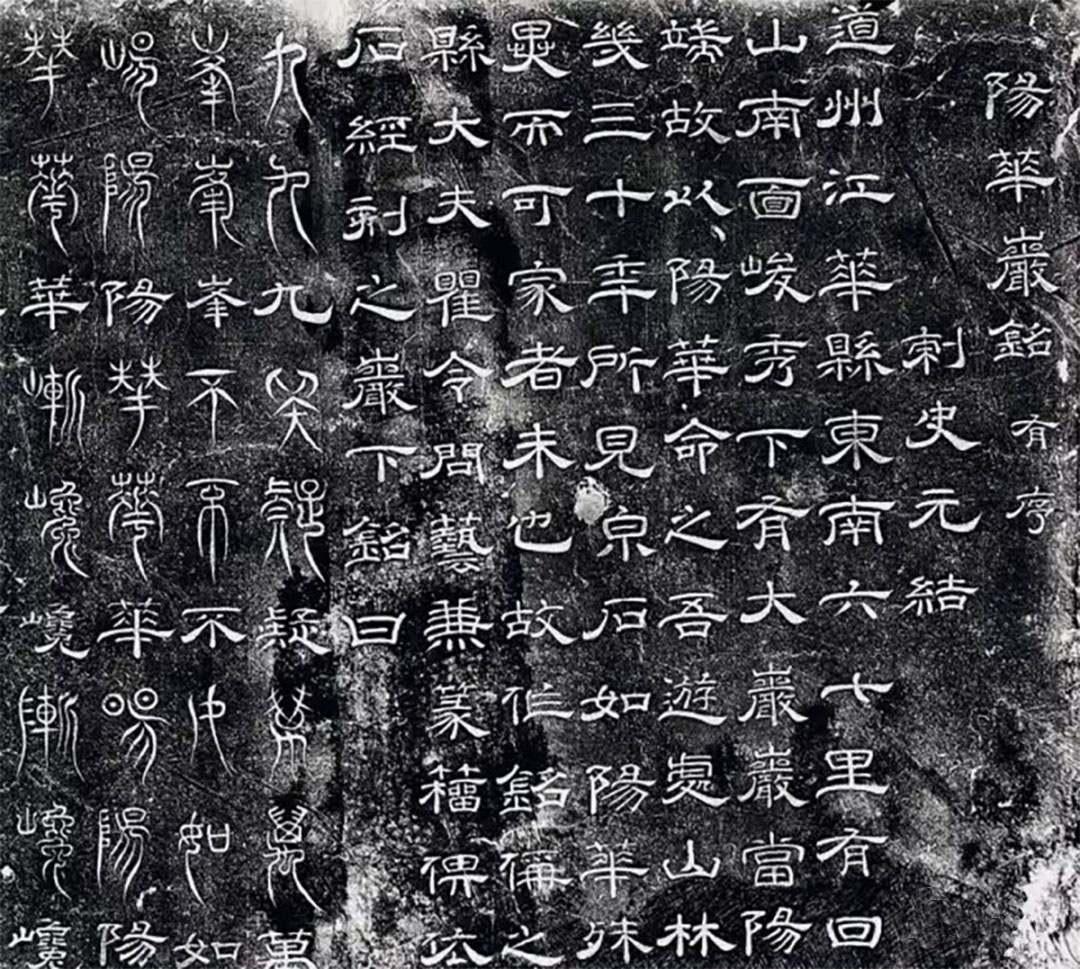 陽華巖銘 有序
刺史元結
道州江華縣東南六七里有回
山南面峻秀下有大巖巖當陽
端故以陽華命之吾遊處山林
幾三十年所見泉石如陽華殊
異而可家者未也故作銘稱之
縣大夫瞿令問藝兼篆籀俾依
石經刻之巖下銘曰
九九九疑疑疑萬萬萬
峯峯峯不不不如如如
陽陽陽華華華陽陽陽
華華華巉巉巉巉巉巉